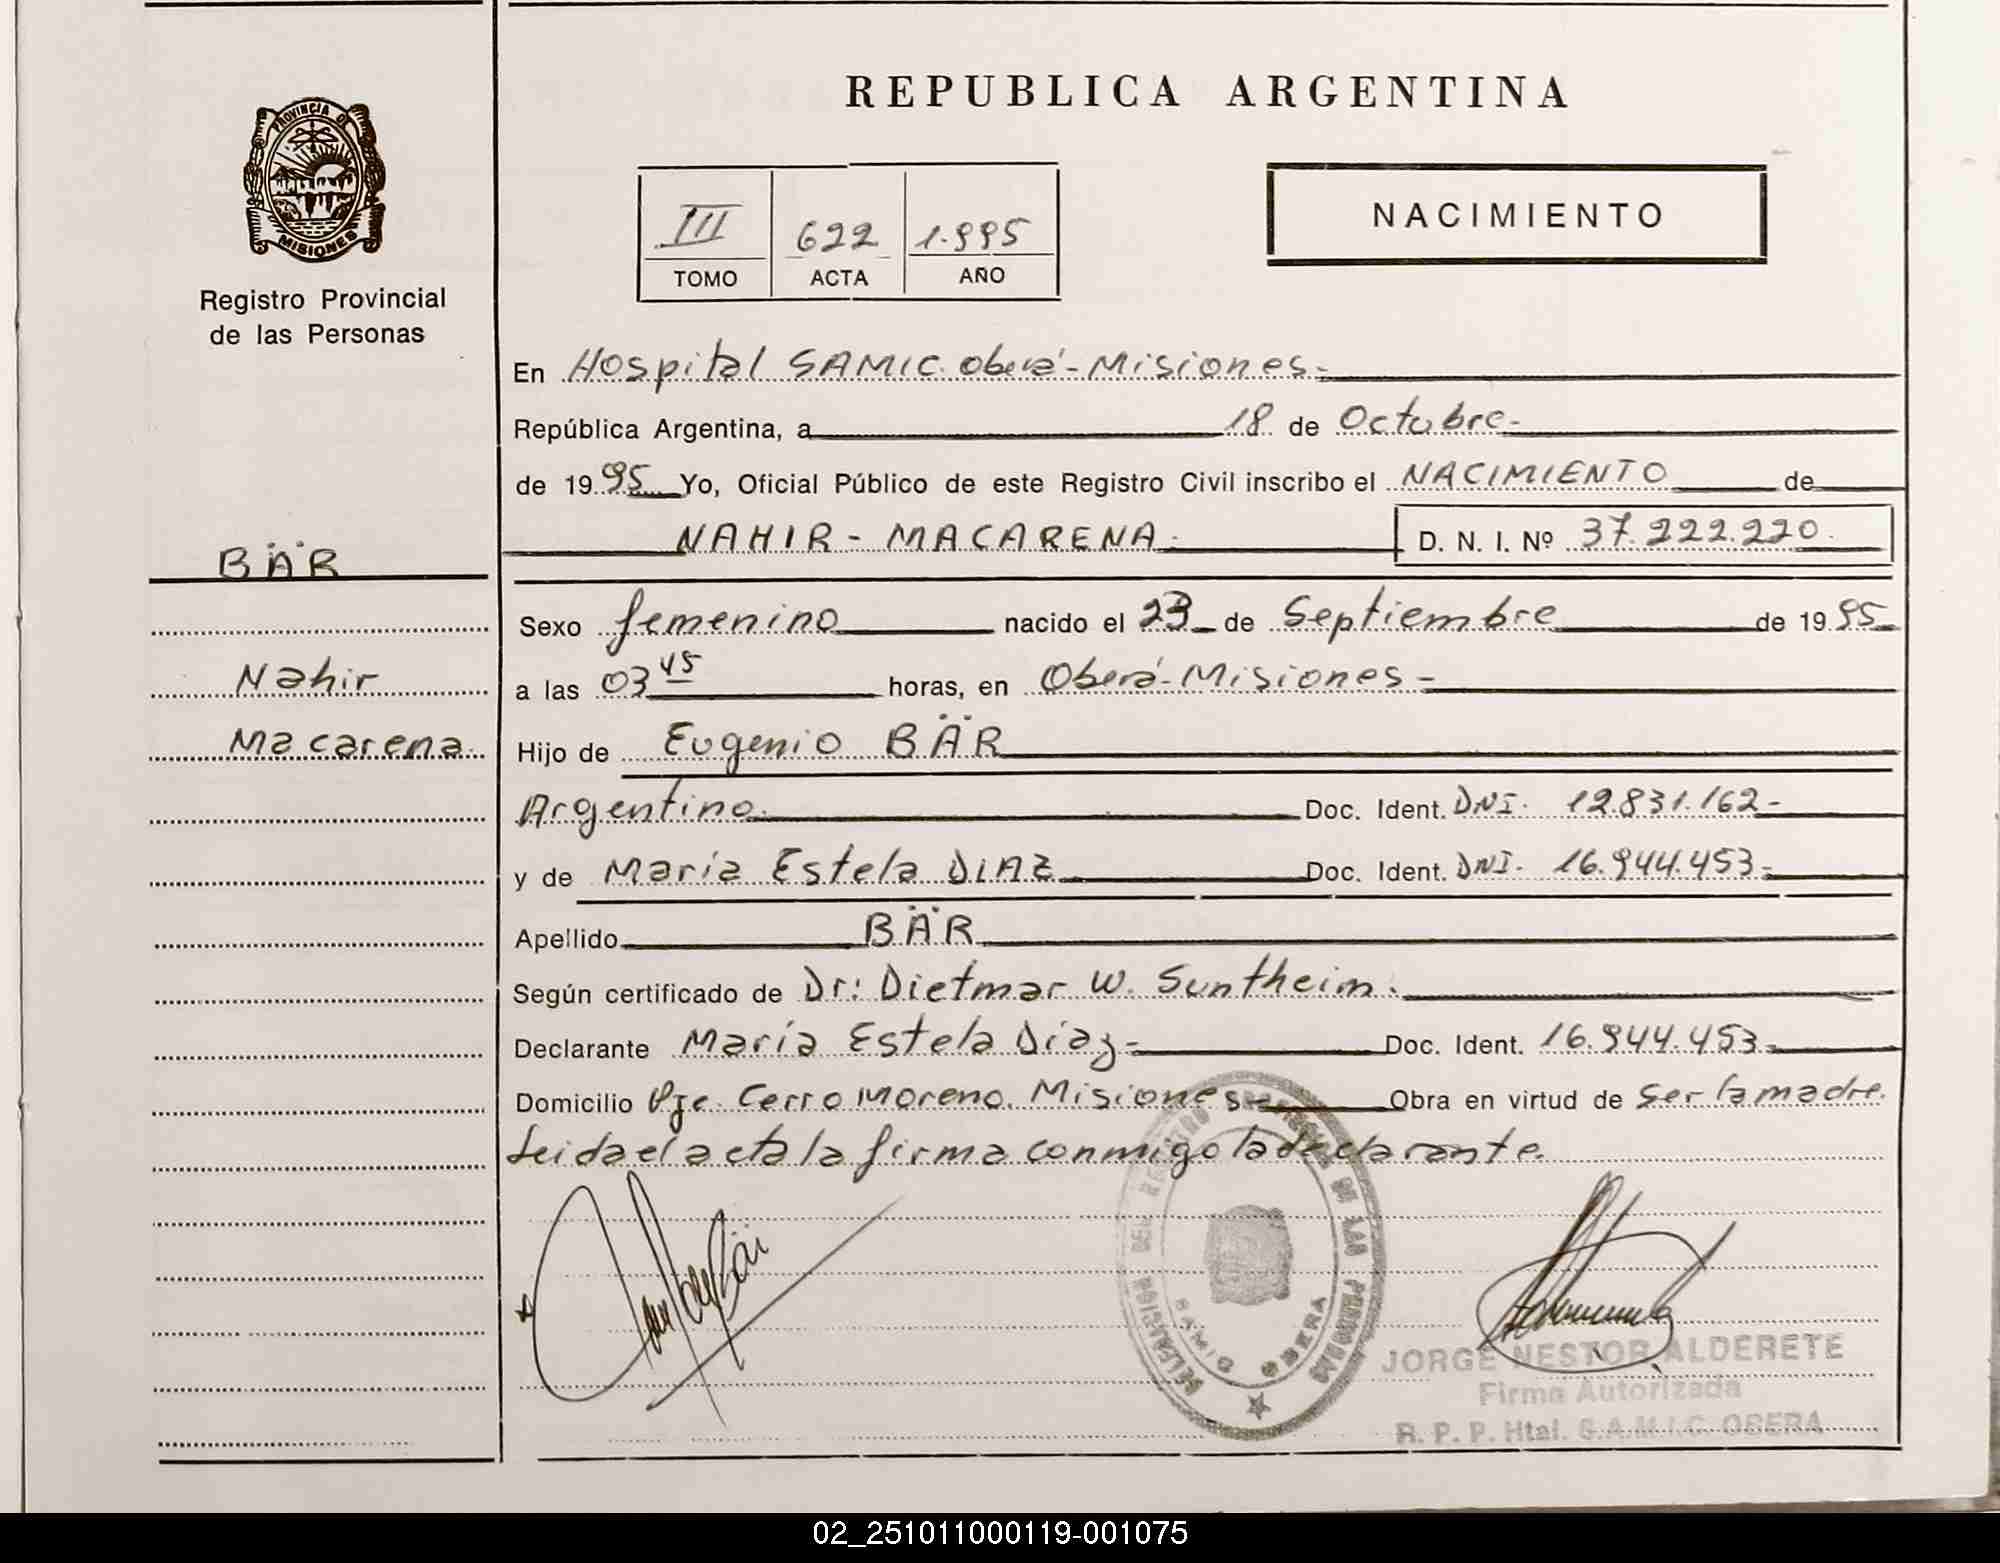 REPUBLICA ARGENTINA
PROVINCIA DE
MISIONES
Registro Provincial
de las Personas
III 622 1.995
TOMO ACTA AÑO
NACIMIENTO
En Hospital SAMIC. Oberá - Misiones -
República Argentina, a 18 de Octubre -
de 1995 Yo, Oficial Público de este Registro Civil inscribo el NACIMIENTO de
NAHIR - MACARENA. D. N. I. Nº 37.222.220.
BÄR
Nahir
Macarena
Sexo femenino nacido el 23 de Septiembre de 1995
a las 03 45 horas, en Oberá - Misiones -
Hijo de Eugenio BÄR
Argentino. Doc. Ident. DNI. 12.831.162-
y de María Estela DIAZ Doc. Ident. DNI. 16.944.453-
Apellido BÄR
Según certificado de Dr: Dietmar W. Suntheim.
Declarante María Estela Díaz - Doc. Ident. 16.944.453-
Domicilio Pje. Cerro Moreno. Misiones - Obra en virtud de ser la madre.
Leida el acta la firma conmigo la declarante.
SAMIC OBERA
JORGE NESTOR ALDERETE
Firma Autorizada
R. P. P. Htal. S.A.M.I.C. OBERA
02_251011000119-001075